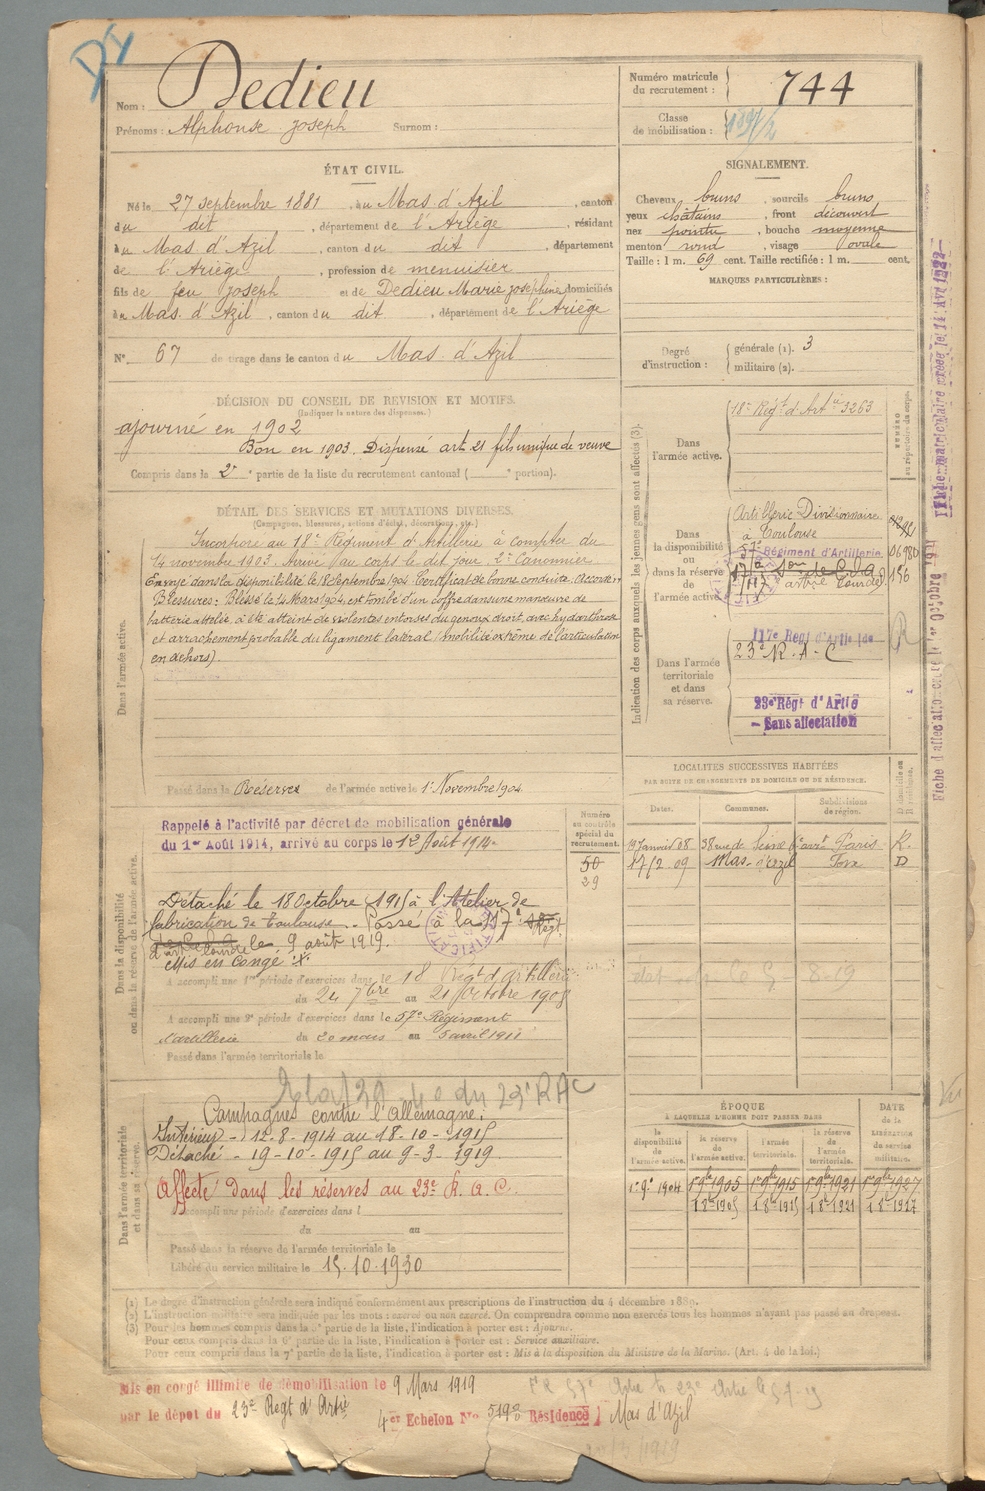 Dy
Nom : Dedieu
Prénoms : Alphonse Joseph Surnom :
Numéro matricule du recrutement : 744
Classe de mobilisation :
ÉTAT CIVIL.
Né le 27 septembre 1881, à u Mas d'Azil, canton
du dit, département de l'Ariège, résidant
à u Mas d'Azil, canton du dit, département
de l'Ariège, profession de menuisier
fils de feu Joseph et de Dedieu Marie Josephine, domiciliés
à u Mas d'Azil, canton du dit, département de l'Ariège
N° 67 de tirage dans le canton du Mas d'Azil
SIGNALEMENT.
Cheveux bruns, sourcils bruns
yeux châtains, front découvert
nez pointu, bouche moyenne
menton rond, visage ovale
Taille : 1 m. 69 cent. Taille rectifiée : 1 m. cent.
MARQUES PARTICULIÈRES :
Degré d'instruction : générale (1). 3
militaire (2).
DÉCISION DU CONSEIL DE REVISION ET MOTIFS.
(Indiquer la nature des dispenses.)
ajourné en 1902
Bon en 1903. Dispensé art 21 fils unique de veuve
Compris dans la 2e partie de la liste du recrutement cantonal ( portion).
DÉTAIL DES SERVICES ET MUTATIONS DIVERSES.
(Campagnes, blessures, actions d'éclat, décorations, etc.)
Dans l'armée active.
Incorporé au 18e Régiment d'Artillerie à compter du
14 novembre 1903. Arrivé au corps le dit jour 2e Canonnier
Envoyé dans la disponibilité le 18 Septembre 1904. Certificat de bonne conduite. Accordé
Blessures : Blessé le 14 Mars 1904, est tombé d'un coffre dans une manœuvre de
batterie attelée, a été atteint de violentes entorses du genoux droit, avec hydarthrose
et arrachement probable du ligament latéral (mobilité extrême de l'articulation
en dehors).
Passé dans la Réserve de l'armée active le 1er Novembre 1904
Indication des corps auxquels les jeunes gens sont affectés (3).
Dans l'armée active.
18e Régt d'Artie 3263
NUMÉRO au répertoire du corps.
Dans la disponibilité ou dans la réserve de l'armée active.
Artillerie Divisionnaire
à Toulouse
57e Régiment d'Artillerie
06980
186
Dans l'armée territoriale et dans sa réserve.
117e Regt d'Artie
23e R.A.C
R
23e Régt d'Artie
- Sans affectation
LOCALITÉS SUCCESSIVES HABITÉES
PAR SUITE DE CHANGEMENTS DE DOMICILE OU DE RÉSIDENCE.
Dates. Communes. Subdivisions de région.
19 Janvier 08 38 rue de Seine Paris R.
17/2 09 Mas-d'Azil Foix D
Dans la disponibilité ou dans la réserve de l'armée active.
Rappelé à l'activité par décret de mobilisation générale
du 1er Août 1914, arrivé au corps le 12 Août 1914.
Numéro au contrôle spécial du recrutement.
50
29
Détaché le 18 Octobre 1915 à l'Atelier de
fabrication de Toulouse. Passé à la 17e
le 9 août 1919.
Mis en congé
A accompli une 1re période d'exercices dans le 18 Régt d'artillerie
du 24 7bre au 21 Octobre 1908
A accompli une 2e période d'exercices dans le 57e Régiment
d'artillerie du 20 mars au 5 avril 1911
Passé dans l'armée territoriale le
Dans l'armée territoriale et dans sa réserve.
Campagnes contre l'Allemagne :
Intérieur - 12-8-1914 au 18-10-1915
Détaché - 19-10-1915 au 9-3-1919.
Affecté dans les réserves au 23e R.A.C.
A accompli une période d'exercices dans l
du au
Passé dans la réserve de l'armée territoriale le
Libéré du service militaire le 15.10.1930
ÉPOQUE
À LAQUELLE L'HOMME DOIT PASSER DANS
la disponibilité de l'armée active. la réserve de l'armée active. l'armée territoriale. la réserve de l'armée territoriale.
DATE de la LIBÉRATION du service militaire.
1er 9bre 1904 1er 9bre 1905 1er 9bre 1915 1er 9bre 1921 1er 9bre 1927
1 8bre 1905 1 8bre 1915 1 8bre 1921 1 8bre 1927
(1) Le degré d'instruction générale sera indiqué conformément aux prescriptions de l'instruction du 4 décembre 1889.
(2) L'instruction militaire sera indiquée par les mots : exercé ou non exercé. On comprendra comme non exercés tous les hommes n'ayant pas passé au drapeau.
(3) Pour les hommes compris dans la partie de la liste, l'indication à porter est : Ajourné.
Pour ceux compris dans la 6e partie de la liste, l'indication à porter est : Service auxiliaire.
Pour ceux compris dans la 7e partie de la liste, l'indication à porter est : Mis à la disposition du Ministre de la Marine. (Art. 4 de la loi.)
Mis en congé illimité de démobilisation le 9 Mars 1919
par le dépôt du 23e Regt d'Artie 4er Echelon No 5198 Résidence Mas d'Azil
Fiche matriculaire créée le 14 Avr 1922